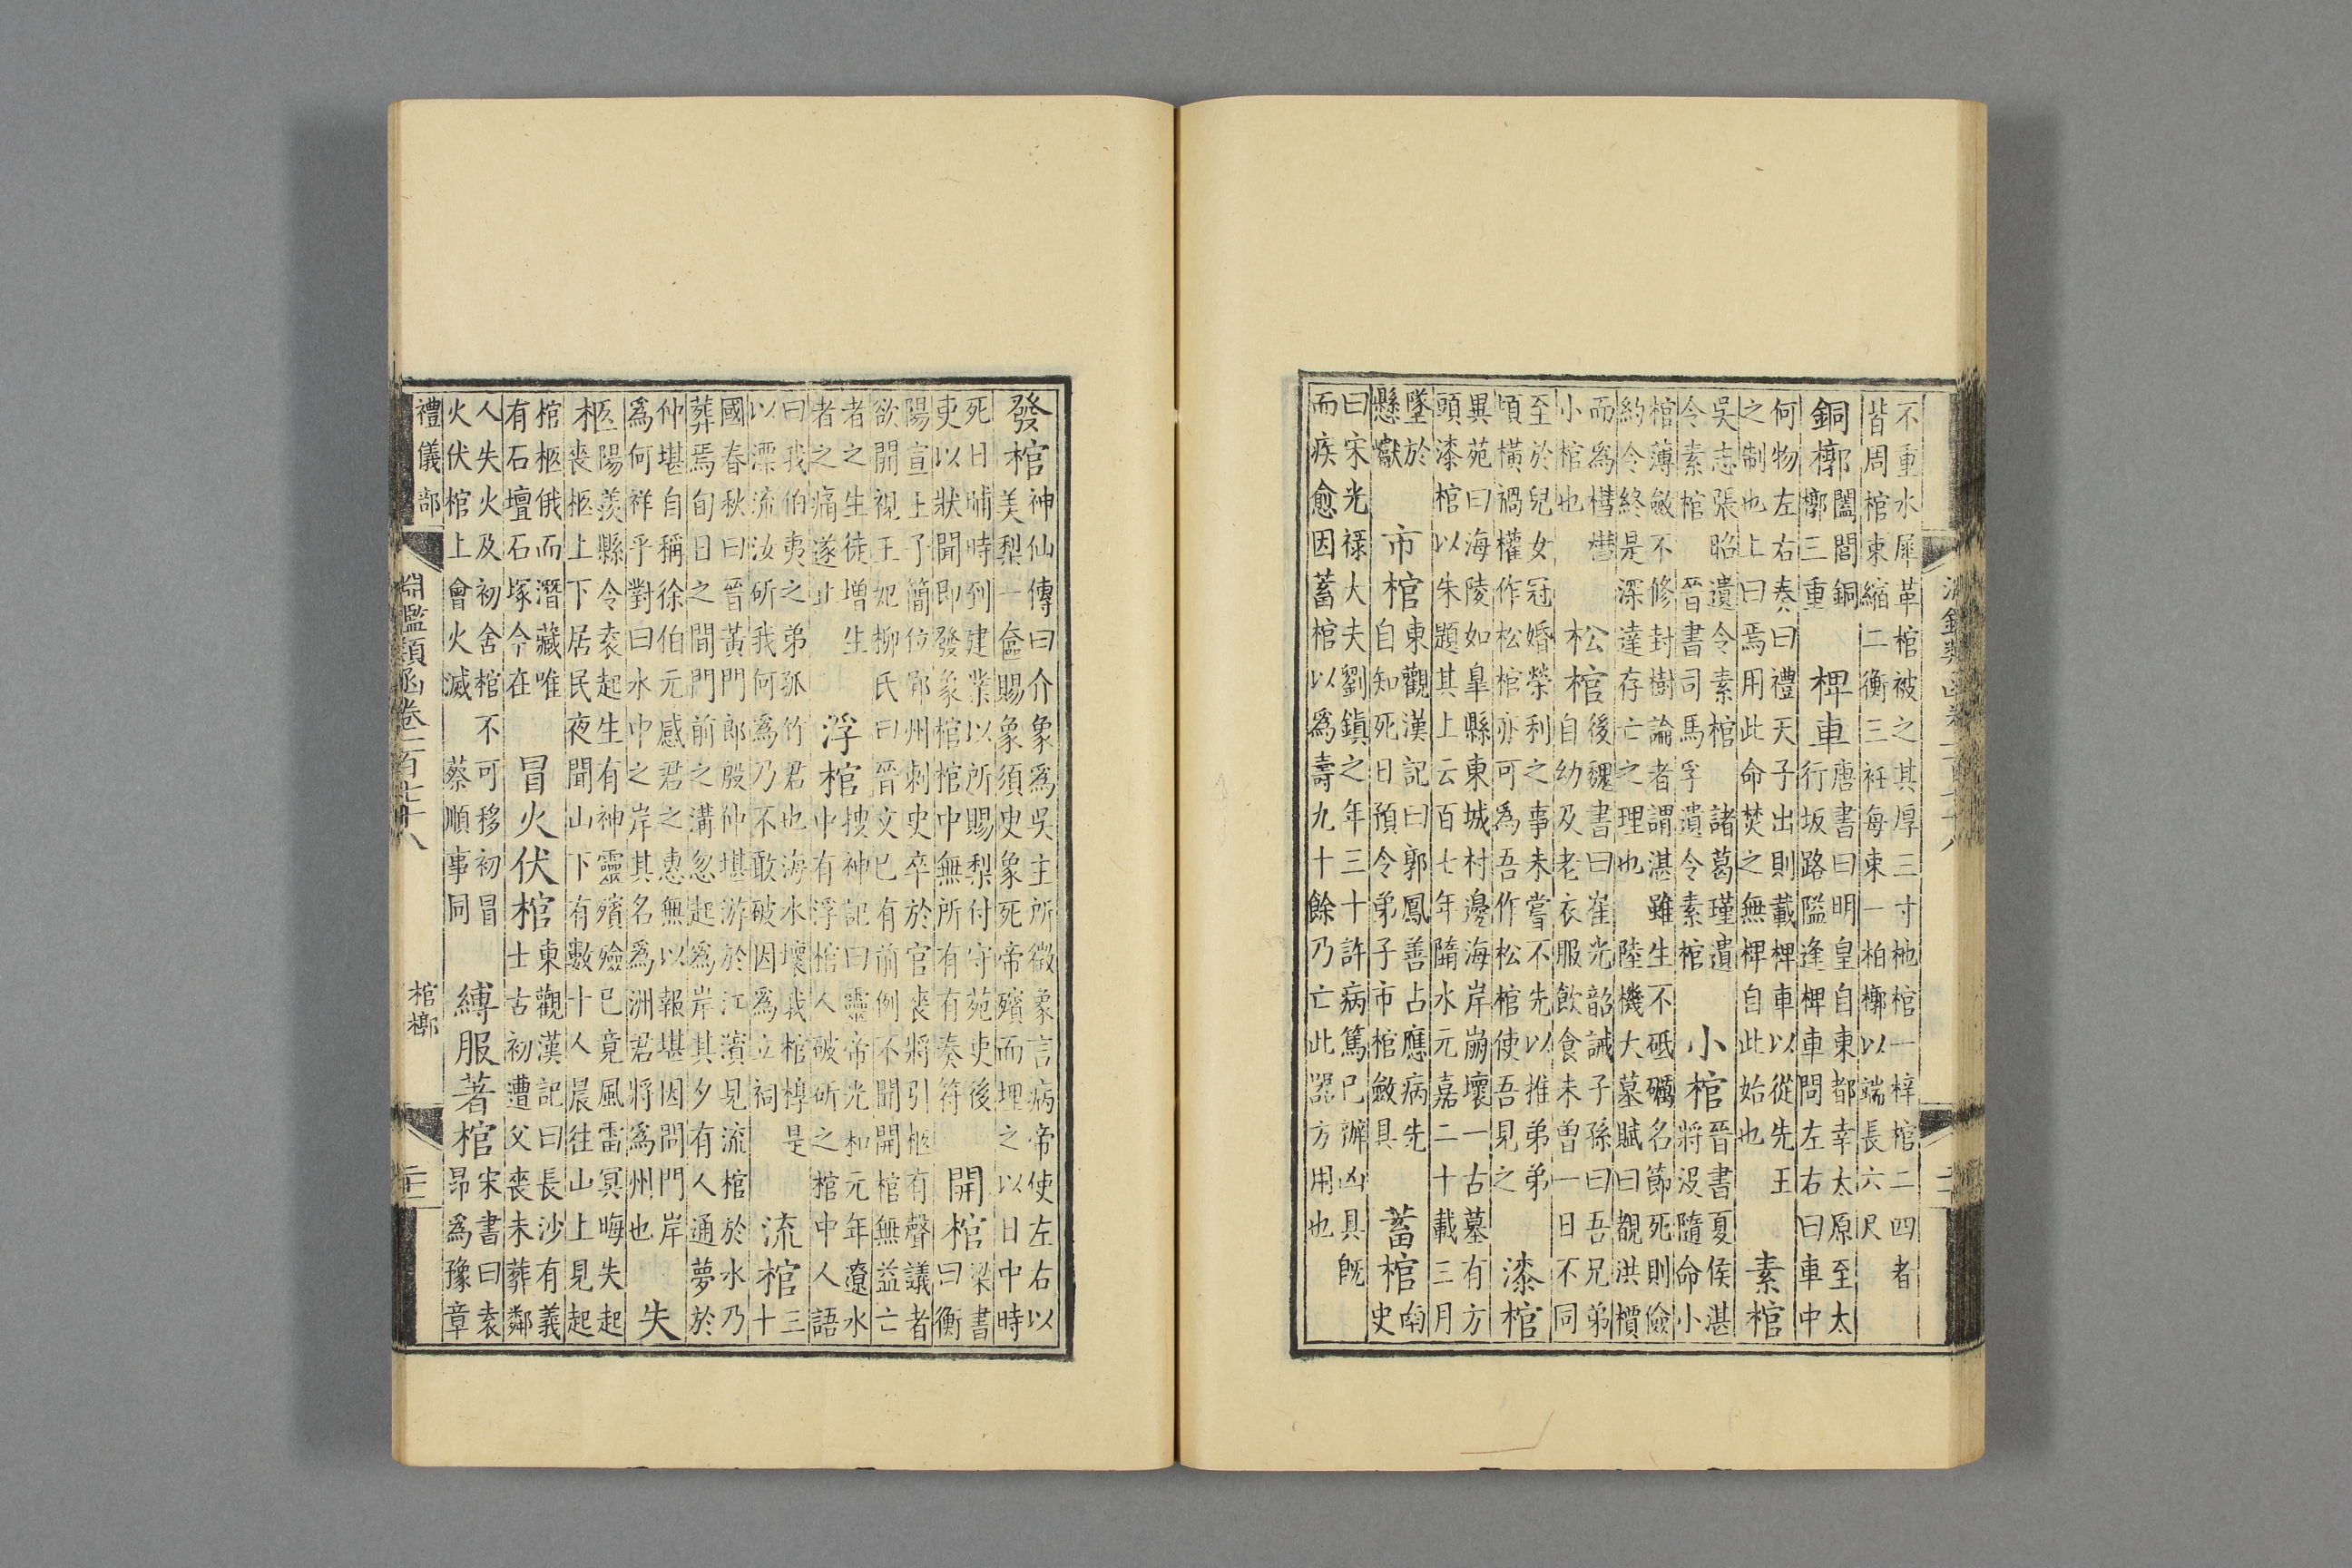 不重水犀革棺被之其厚三寸杝棺一梓棺二四者
皆周棺束縮二衡三衽每束一柏槨以端長六尺
銅槨
闔閭銅
槨三重
椑車
唐書曰明皇自東都幸太原至太
行坂路隘逢椑車問左右曰車中
何物左右奏曰禮天子出則載椑車以從先王
之制也上曰焉用此命焚之無椑自此始也
素棺
吳志張昭遺令素棺 諸葛瑾遺
令素棺 晉書司馬孚遺令素棺
小棺
晉書夏侯湛
將沒隨命小
棺薄斂不修封樹論者謂湛雖生不砥礪名節死則儉
約令終是深達存亡之理也 陸機大墓賦曰覩洪櫝
而為槥槥
小棺也
松棺
後魏書曰崔光韶誡子孫曰吾兄弟
自幼及老衣服飲食未曾一日不同
至於兒女冠婚榮利之事未嘗不先以推弟弟
頃橫禍權作松棺亦可為吾作松棺使吾見之
漆棺
異苑曰海陵如臯縣東城村邊海岸崩壞一古墓有方
頭漆棺以朱題其上云百七年隨水元嘉二十載三月
墜於
懸巘
市棺
東觀漢記曰郭鳳善占應病先
自知死日預令弟子市棺斂具
蓄棺
南
史
曰宋光祿大夫劉鎮之年三十許病篤已辦凶具既
而疾愈因蓄棺以為壽九十餘乃亡此器方用也
發棺
神仙傳曰介象為吳主所徵象言病帝使左右以
美梨一奩賜象須史象死帝殯而埋之以日中時
死日晡時到建業以所賜梨付守苑吏後
吏以狀聞即發象棺棺中無所有有奏符
開棺
梁書
曰衡
陽宣王子簡位郢州刺史卒於官喪將引柩有聲議者
欲開視王妃柳氏曰晉文已有前例不聞開棺無益亡
者之生徒增生
者之痛遂止
浮棺
搜神記曰靈帝光和元年遼水
中有浮棺人破斫之棺中人語
曰我伯夷之弟孤竹君也海水壞我棺椁是
以漂流汝斫我何為乃不敢破因為立祠
流棺
三
十
國春秋曰晉黃門郎殷仲堪游於江濱見流棺於水乃
葬焉旬日之間門前之溝忽起為岸其夕有人通夢於
仲堪自稱徐伯元感君之惠無以報堪因問門岸
為何祥乎對曰水中之岸其名為洲君將為州也
失
柩
陽羨縣令袁起生有神靈殯殮已竟風雷冥晦失起
喪柩上下居民夜聞山下有數十人晨往山上見起
棺柩俄而潛藏唯
有石壇石塚今在
冒火伏棺
東觀漢記曰長沙有義
士古初遭父喪未葬鄰
人失火及初舍棺不可移初冒
火伏棺上會火滅 蔡順事同
縛服著棺
宋書曰袁
昂為豫章
禮儀部
淵鑑類函卷一百七十八
棺槨